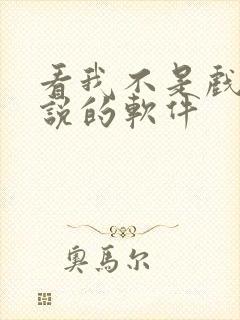 看我不是戲
說的軟件
奧馬尔